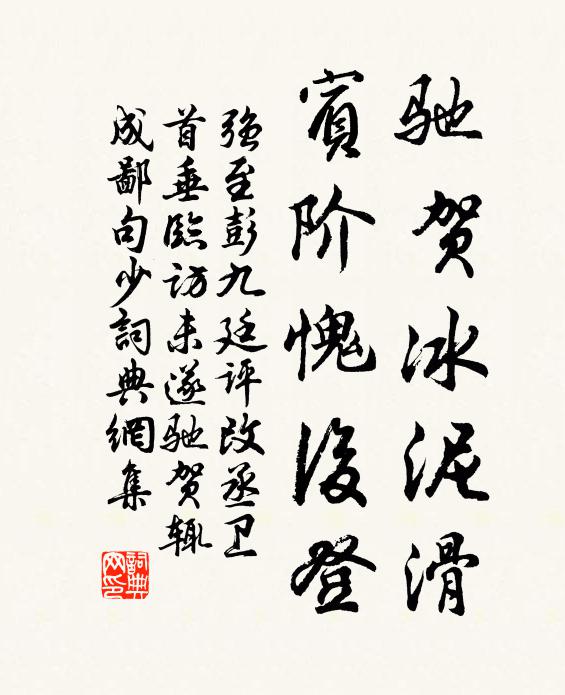 驰贺冰泥滑
宾阶愧后登
强至彭九廷评改丞卫
首垂临访未遂驰贺辄
成鄙句少词典网集
詞典网印